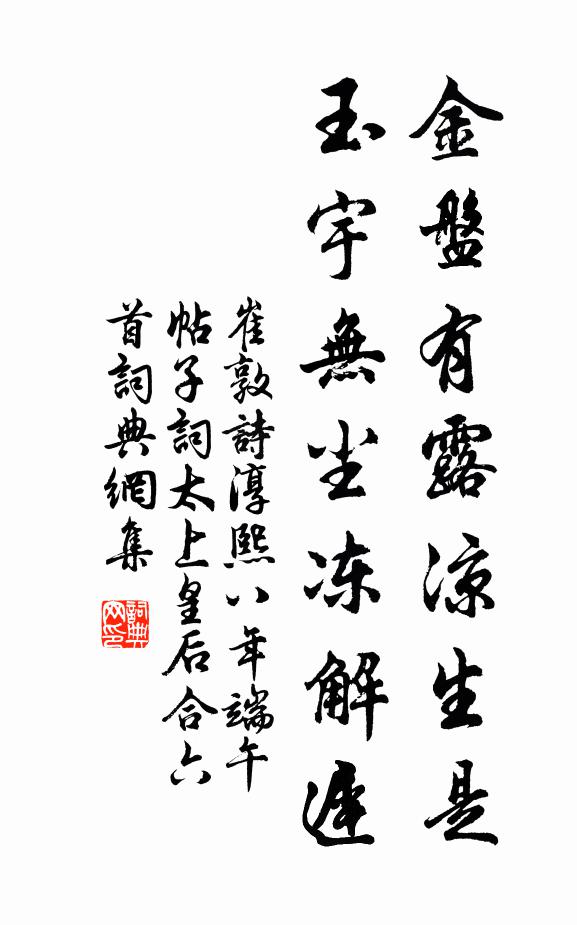 金盤有露涼生是
玉宇無尘冻解遲
崔敦詩淳熙八年端午
帖子詞太上皇后合六
首詞典網集
詞典网印